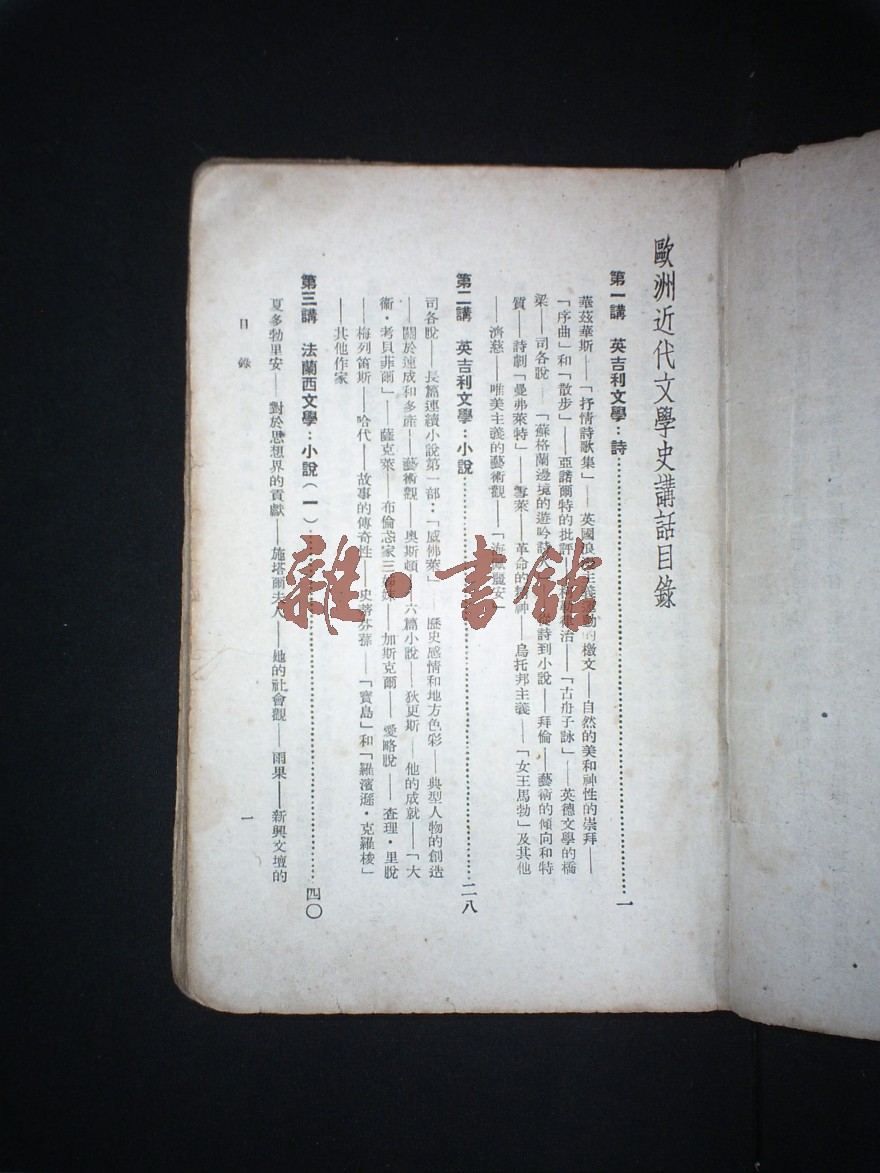 歐洲近代文學史講話目錄
第一講 英吉利文學：詩 一
華茲華斯——「抒情詩歌集」——英國浪漫主義運動的檄文——自然的美和神性的崇拜——
「序曲」和「散步」——亞諾爾特的批評——治——「古舟子詠」——英德文學的橋
梁——司各脫——「蘇格蘭邊境的遊吟詩詩到小說——拜倫——藝術的傾向和特
質——詩劇「曼弗萊特」——雪萊——革命的精神——烏托邦主義——「女王馬勃」及其他
——濟慈——唯美主義的藝術觀——「安」
第二講 英吉利文學：小說 二八
司各脫——長篇連續小說第一部：「威佛萊」——歷史感情和地方色彩——典型人物的創造
——關於速成和多產——藝術觀——奧斯頓六篇小說——狄更斯——他的成就——「大
衞·考貝菲爾」——薩克萊——布倫忒家三姊妹——加斯克爾——愛略脫——查理·里脫
——梅列笛斯——哈代——故事的傳奇性——史蒂芬蓀——「寶島」和「羅濱遜·克羅梭」
——其他作家
第三講 法蘭西文學：小說（一） 四〇
夏多勃里安——對於思想界的貢獻——施塔爾夫人——她的社會觀——雨果——新興文壇的
目錄
一
雜·書館